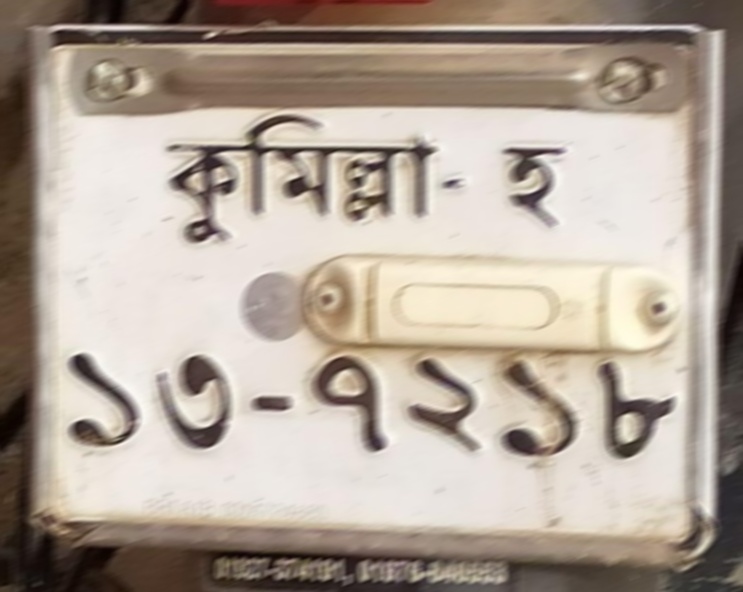 কুমিল্লা- হ
১৩-৭২১৮